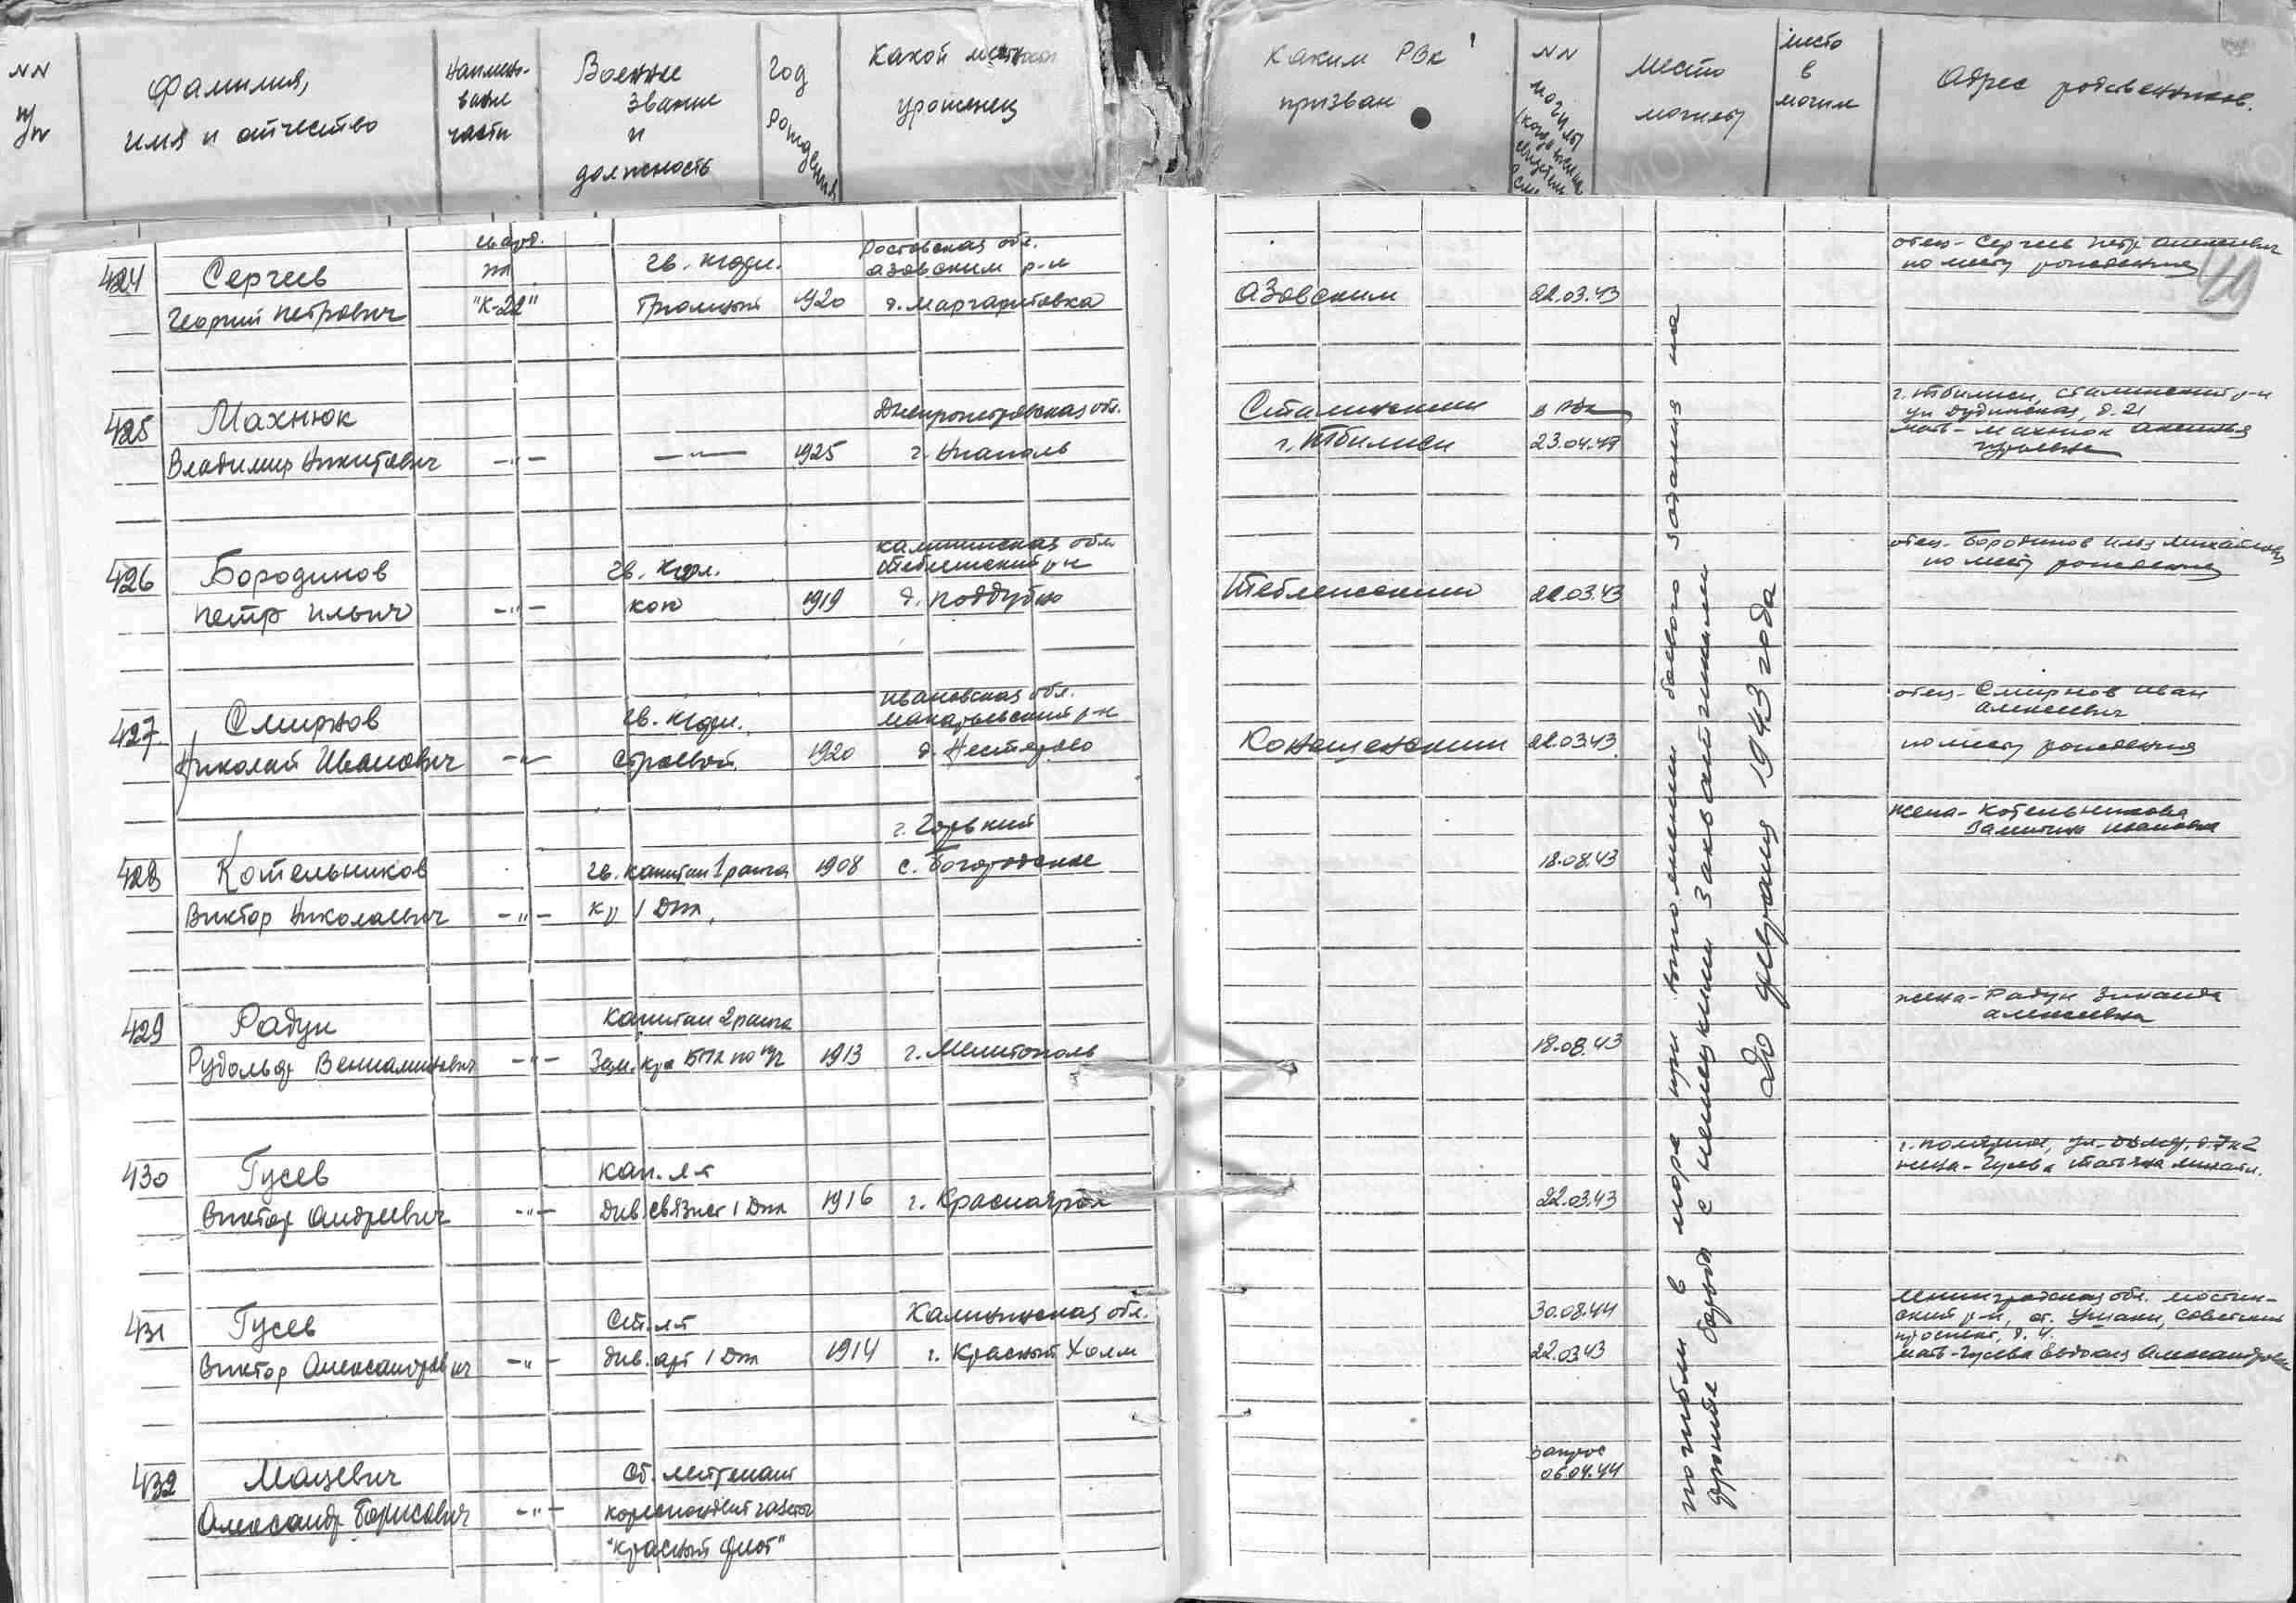 NN
п/п
Фамилия,
имя и отчество
Наимено-
вание
части
Военное
звание
и
должность
Год
рождения
Какой местности
уроженец
Каким РВК
призван
NN
могилы
Место
могилы
место
в
могиле
Адрес родственников.
49
424
Сергеев
Георгий Петрович
гвард.
пл
"К-22"
гв. кр-фл.
Трюмный
1920
Ростовская обл.
Азовский р-н
д. Маргаритовка
Азовским
22.03.43
отец - Сергеев Петр Алексеевич
по месту рождения
425
Махнюк
Владимир Никитович
-"-
-"-
1925
Днепропетровская обл.
г. Никополь
Сталинским
г. Тбилиси
в РВК
23.04.49
г. Тбилиси, Сталинский р-н
ул. д. 21
мать - Махнюк
426
Бородинов
Петр Ильич
-"-
гв. кр-фл.
кок
1919
Калининская обл.
Теблешский р-н
д. Поддубно
Теблешским
22.03.43
отец - Бородинов Илья Михайлович
по месту рождения
427.
Смирнов
Николай Иванович
-"-
гв. кр-фл.
Строевой
1920
Ивановская обл.
Макарьевский р-н
д. Нестерово
22.03.43
отец - Смирнов Иван
Алексеевич
по месту рождения
428
Котельников
Виктор Николаевич
-"-
гв. капитан 1 ранга
к-р 1 Дпл,
1908
г. Горький
с. Богородское
18.08.43
жена - Котельникова
Ивановна
429
Радун
Рудольф Вениаминович
-"-
Капитан 2 ранга
Зам. к-ра БПЛ по п/ч
1913
г. Мелитополь
18.08.43
жена - Радун Зинаида
Алексеевна
430
Гусев
Виктор Андреевич
-"-
кап. л-т
Див. связист 1 Дпл
1916
г. Красноярск
22.03.43
г. Полярное, ул.
жена - Гусева Татьяна Михайл.
431
Гусев
Виктор Александрович
-"-
Ст. л-т
див. арт 1 Дпл
1914
Калининская обл.
г. Красный Холм
30.08.44
22.03.43
Ленинградская обл. Мстин-
ский р-н, ст. Советский
проспект, д. 4.
мать - Гусева Евдокия Александровна
432
Мацевич
Александр Борисович
-"-
Ст. лейтенант
кореспондент газеты
"Красный флот"
Запрос
06.04.44
погибли в море при выполнении боевого задания на
фронте борьбы с немецкими захватчиками
До февраля 1943 года